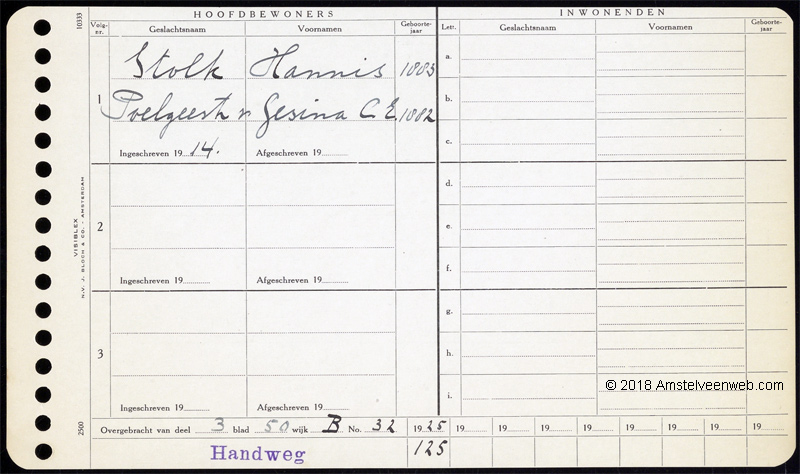 HOOFDBEWONERS INWONENDEN
Volg-nr. Geslachtsnaam Voornamen Geboorte-jaar Lett. Geslachtsnaam Voornamen Geboorte-jaar
Stolk Hannis 1883 a.
1 Poelgeest v. Gesina C.E. 1882 b.
Ingeschreven 19 14. Afgeschreven 19 c.
d.
2 e.
Ingeschreven 19 Afgeschreven 19 f.
g.
3 h.
Ingeschreven 19 Afgeschreven 19 i.
Overgebracht van deel 3 blad 50 wijk B No. 32 1925 19 19 19 19 19 19 19
Handweg 125
10333
VISIBLEX
N.V. J. BLOCH & CO. - AMSTERDAM
2500
© 2018 Amstelveenweb.com